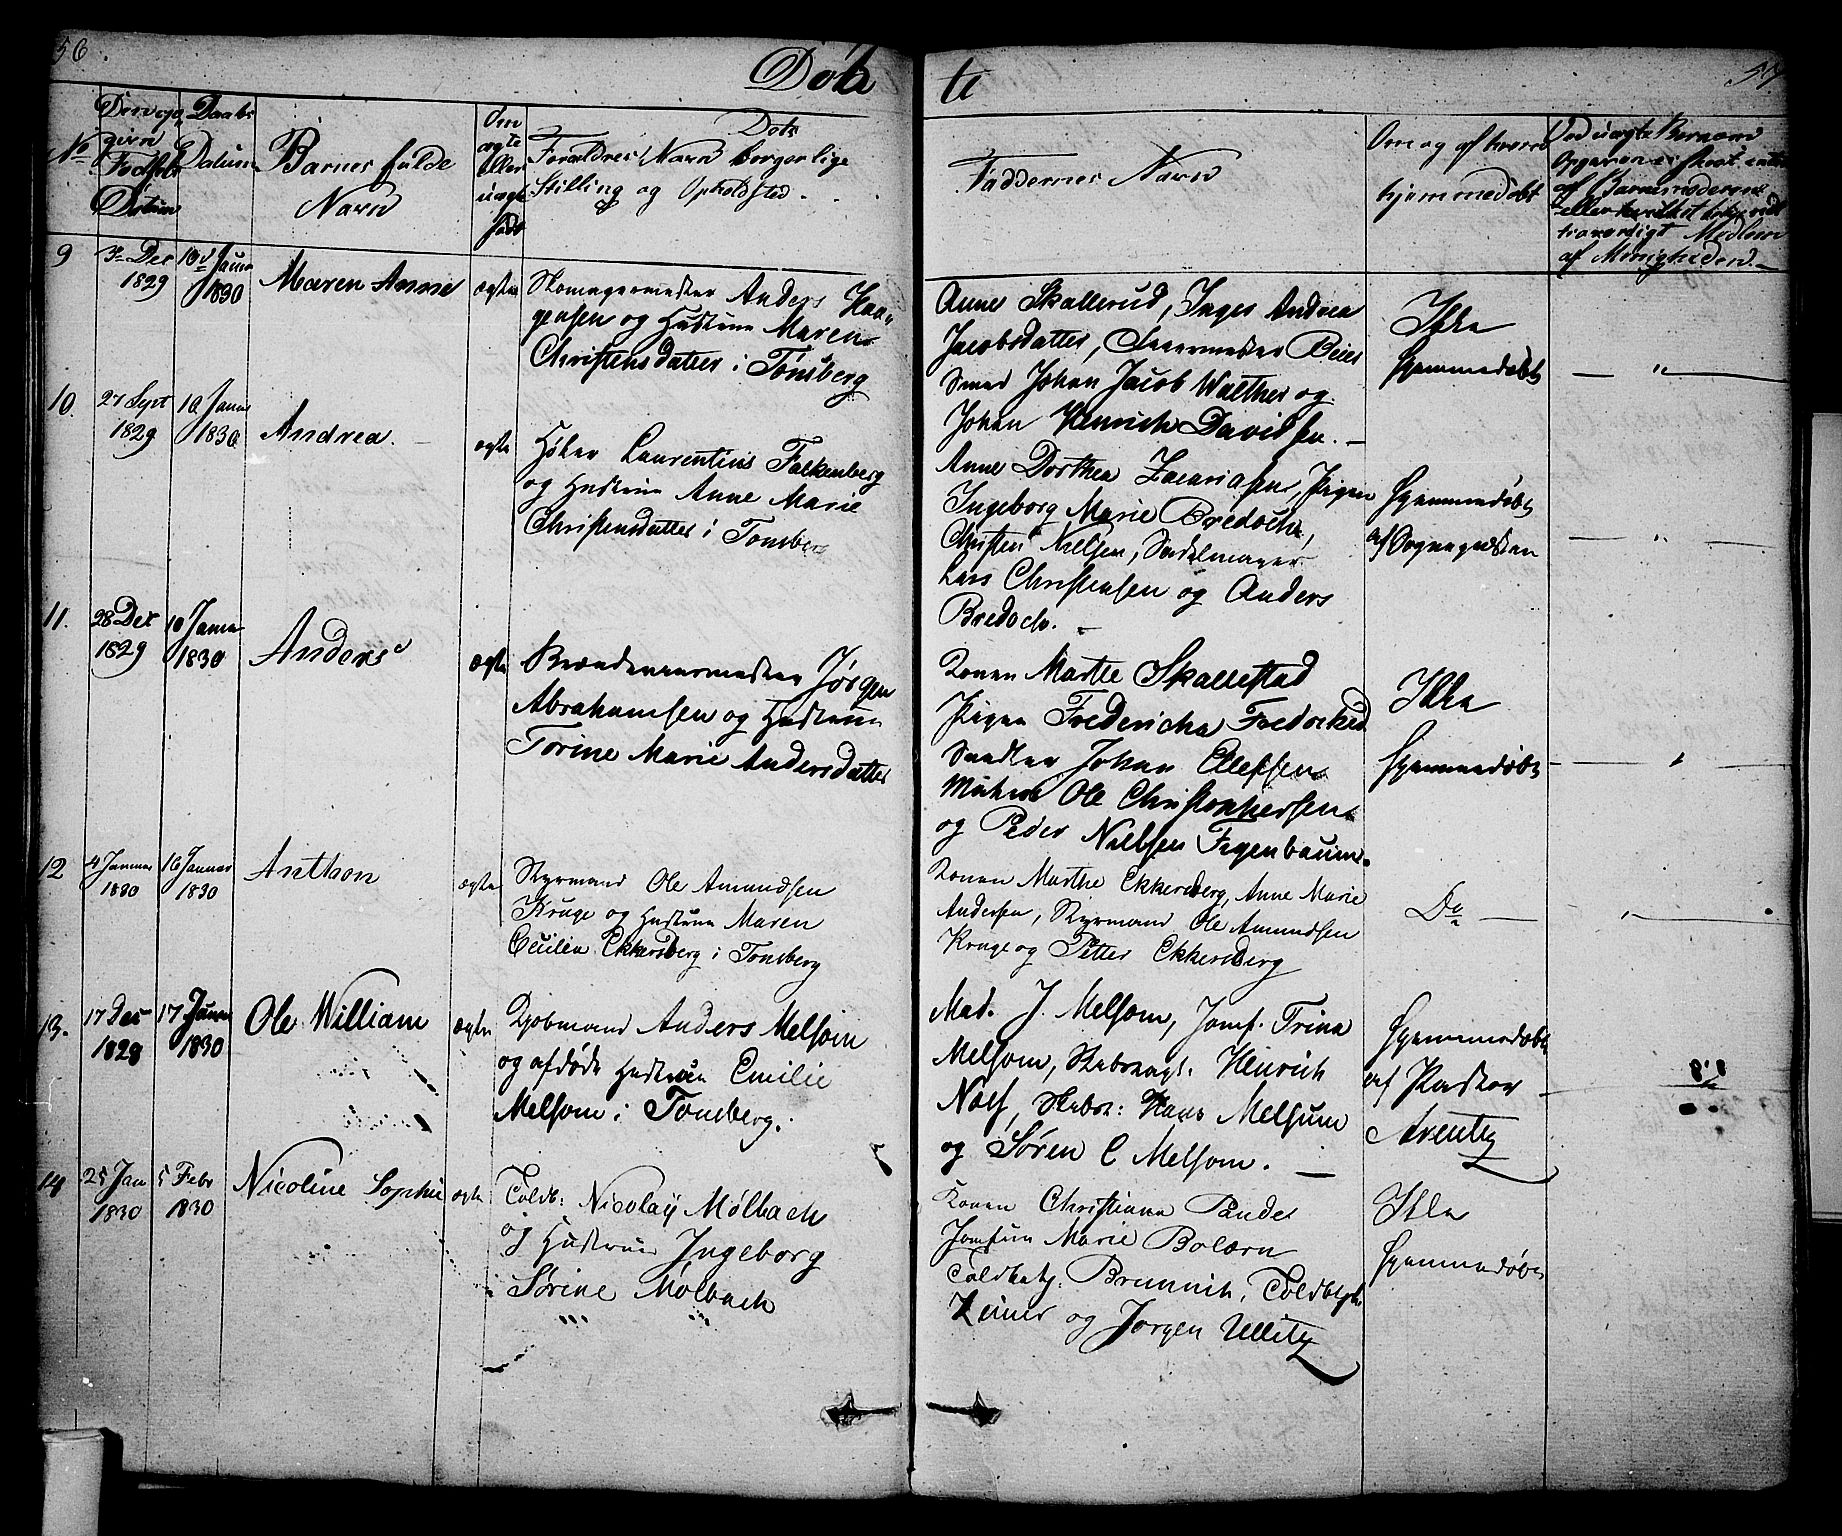 56.
Döb
te
57.
No
Den opgivne Fødsels Datum
Daabs Datum
Barnes fulde Navn
Om ægte eller uægte født
Dets Forældres Navn borgerlige
Stilling og Opholdsted.
Faddernes Navn
Om og af hvem
hjemmedøbt
Ved uægte Børn om
Opgaven er skeet enten
af Barnemoderen
eller hvilket
troværdigt Medlem
af Menigheden.
9
3 Dec
1829
10 Januar
1830
Maren Anne
ægte
Skomagermester Anders Haa-
gensen og Hustrue Maren
Christensdatter i Tønsberg
Anne Skallerud, Inger Andrea
Jacobsdatter, Beier
Smed Johan Jacob Walther og
Johan Henrich Davidsen.
Ikke
hjemmedøbt
"
10.
27 Sept
1829
10 Januar
1830
Andrea.
ægte
Høker Laurentius Falkenberg
og Hustrue Anne Marie
Christensdatter i Tønsberg
Anne Dorthea Zacariasen, Pigen
Ingeborg Marie Bredoch,
Christen Nielsen, Sadelmager
Lars Christensen og Anders
Bredoch.
hjemmedøbt
af Sognepræsten
"
11.
28 Dec
1829
10 Januar
1830
Anders
ægte
Jørgen
Abrahamsen og Hustrue
Torine Marie Andersdatter
Konen Marthe Skallestad
Pigen Fredericha
Johan Ellefsen
Ole Christophersen
og Peder Nielsen Figenbaum.
Ikke
hjemmedøbt
"
12
4 Januar
1830
16 Januar
1830
Anthon
ægte
Styrmand Ole Amundsen
Kruge og Hustrue Maren
Cecilia Ekkersberg i Tønsberg
Konen Marthe Ekkersberg, Anne Marie
Andersen, Styrmand Ole Amundsen
Kruge og Petter Ekkersberg
Do
"
13.
17 Dec
1828
17 Januar
1830
Ole William
ægte
Kjøbmand Anders Melsom
og afdøde Hustrue Emilie
Melsom i Tønsberg.
Mad. J. Melsom, Jomf. Trina
Melsom, Heinrich
Hans Melsum
og Søren C Melsom.
hjemmedøbt
af Pastor
Arentz
14
25 Jan
1830
5 Febr
1830
Nicoline Sophie
ægte
Toldb: Nicolaij Mølbach
og Hustrue Ingeborg
Sørine Mølbach
Konen Christiane
Jomfrue Marie Bolærn
Toldbetj. Brunnich, Toldbetj.
og Jørgen Ullitz
Ikke
hjemmedøbt